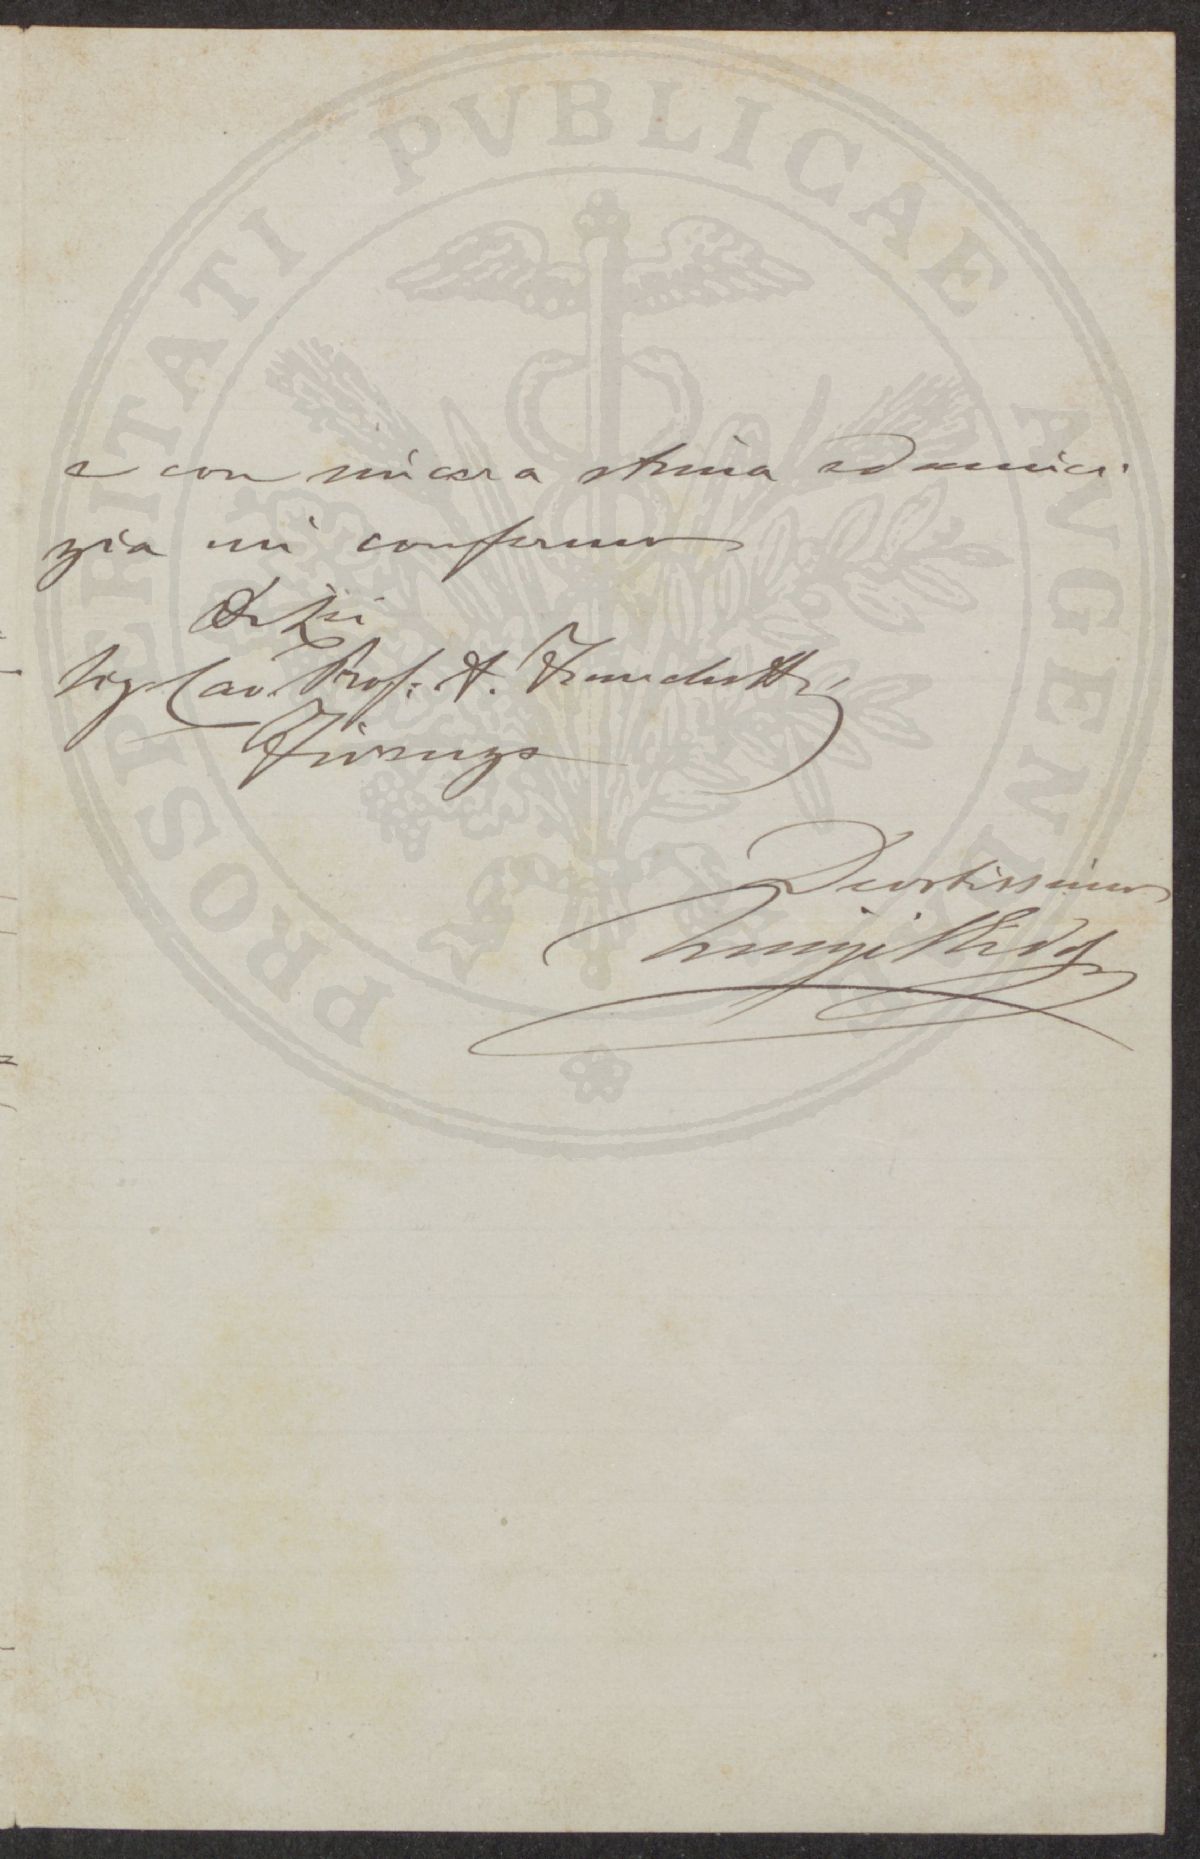 PROSPERITATI PVBLICAE AVGENDAE
e con sincera stima ed amici-
zia mi confermo
Di Lei
Sig. Cav. Prof. A.
Firenze
Devotissimo
Luigi